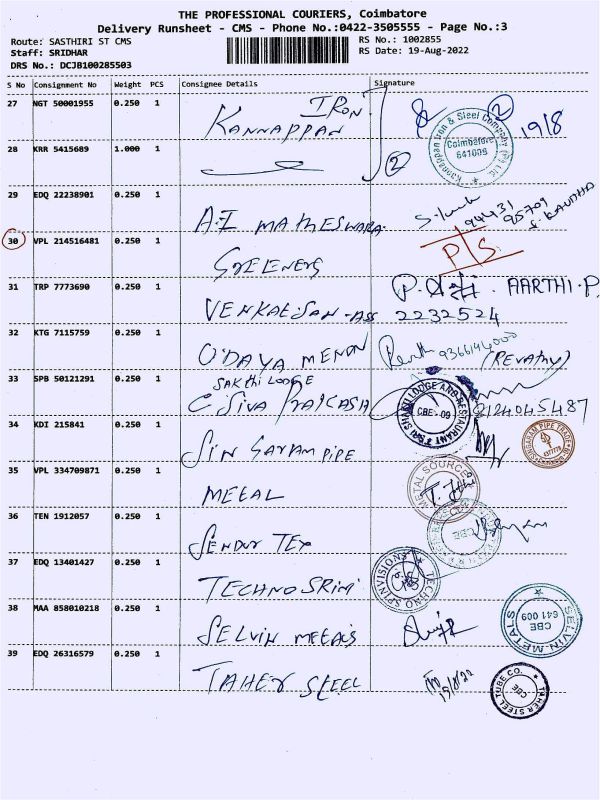 THE PROFESSIONAL COURIERS, Coimbatore
Delivery Runsheet - CMS - Phone No.:0422-3505555 - Page No.:3
Route: SASTHIRI ST CMS
RS No.: 1002855
Staff: SRIDHAR
RS Date: 19-Aug-2022
DRS No.: DCJB100285503
S No Consignment No Weight PCS Consignee Details Signature
27 NGT 50001955 0.250 1 KANNAPPAN IRON 2 19/8
Kannappan Iron & Steel Company (P) Ltd.
Coimbatore
641009
28 KRR 5415689 1.000 1 2
29 EDQ 22238901 0.250 1 A.I MATHESWARA 94431 95709
30 VPL 214516481 0.250 1 GREENERS P/S
31 TRP 7773690 0.250 1 VENKATESAN - ASS 2232524 AARTHI.P
32 KTG 7115759 0.250 1 UDAYA MENON 9366144000 (REVATHY)
33 SPB 50121291 0.250 1 SAKTHI LODGE
C. SIVA PRAKASH 9124045487
SRI SHAKTI LODGE AND RESTAURANT
CBE - 09
34 KDI 215841 0.250 1 PIPE
35 VPL 334709871 0.250 1 METAL
METAL SOURCE
CBE
36 TEN 1912057 0.250 1 SENDUR TEX
CBE
37 EDQ 13401427 0.250 1 TECHNO SRINI
TECHNO SPINVISIONS
38 MAA 858010218 0.250 1 SELVIN METALS
SELVIN METALS
CBE
641 009
39 EDQ 26316579 0.250 1 TAHER STEEL 19/8/22
TAHER STEEL TUBE CO.
CBE